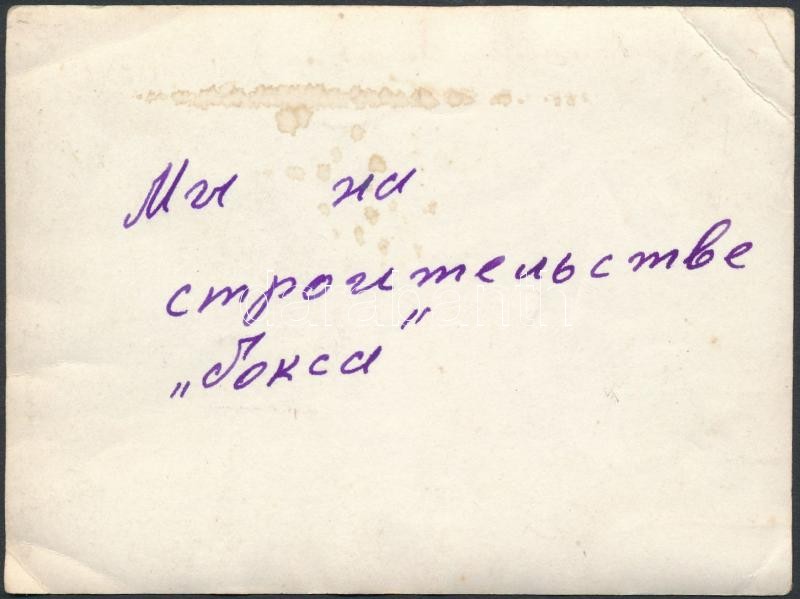 Мы на
строительстве
„бокса"
darabanth